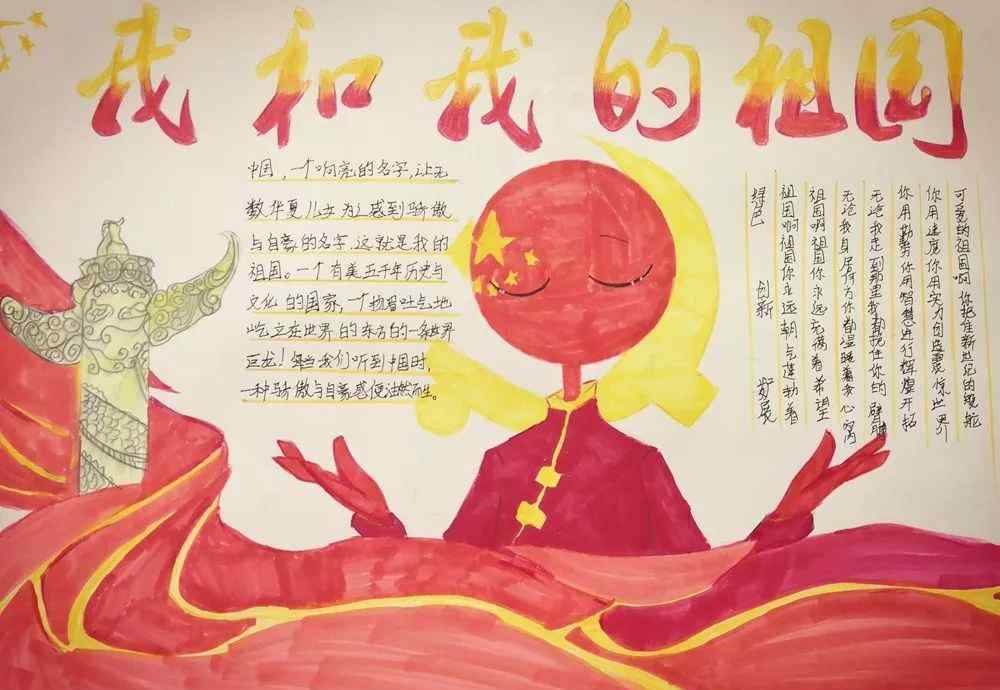 我和我的祖国
中国，一个响亮的名字，让无
数华夏儿女为之感到骄傲
与自豪的名字，这就是我的
祖国。一个有美五千年历史与
文化的国家，一个扬眉吐气地
屹立在世界的东方的一条世界
巨龙！每当我们听到中国时，
一种骄傲与自豪感便油然而生。
可爱的祖国啊 你把住新世纪的镜舵
你用速度你用实力创造震惊世界
你用勤劳你用智慧进行辉煌开拓
无论我走到那里我都挽住你的臂膊
无论我身居何方你都温暖着我心窝
祖国啊祖国你永远充满着希望
祖国啊祖国你永远朝气蓬勃着
绿色 创新 发展